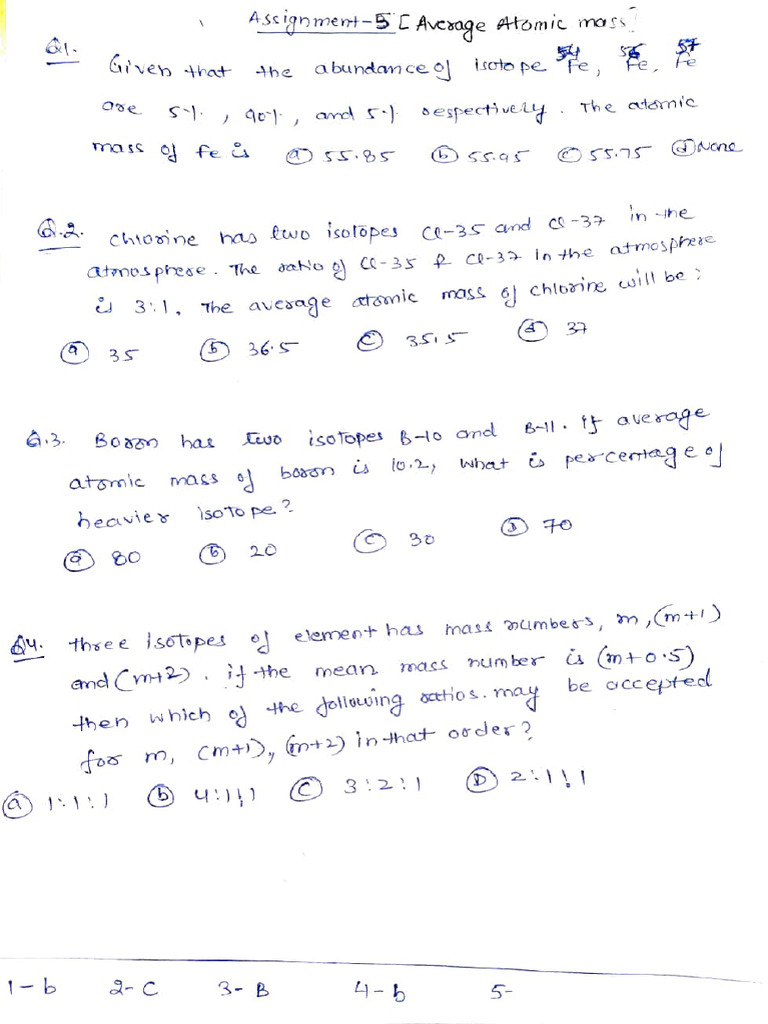 Assignment-5 [Average Atomic mass]
Q1. Given that the abundance of isotope ⁵⁴Fe, ⁵⁶Fe, ⁵⁷Fe
are 5%, 90%, and 5% respectively. The atomic
mass of fe is (a) 55.85 (b) 55.95 (c) 55.75 (d) None
Q.2. chlorine has two isotopes Cl-35 and Cl-37 in the
atmosphere. The ratio of Cl-35 & Cl-37 in the atmosphere
is 3:1, The average atomic mass of chlorine will be:
(a) 35 (b) 36.5 (c) 35.5 (d) 37
Q.3. Boron has two isotopes B-10 and B-11. If average
atomic mass of boron is 10.2, what is percentage of
heavier isotope?
(a) 80 (b) 20 (c) 30 (D) 70
Q4. three isotopes of element has mass numbers, m, (m+1)
and (m+2). if the mean mass number is (m+0.5)
then which of the following ratios. may be accepted
for m, (m+1), (m+2) in that order?
(a) 1:1:1 (b) 4:1:1 (c) 3:2:1 (D) 2:1:1
1-b 2-C 3-B 4-b 5-